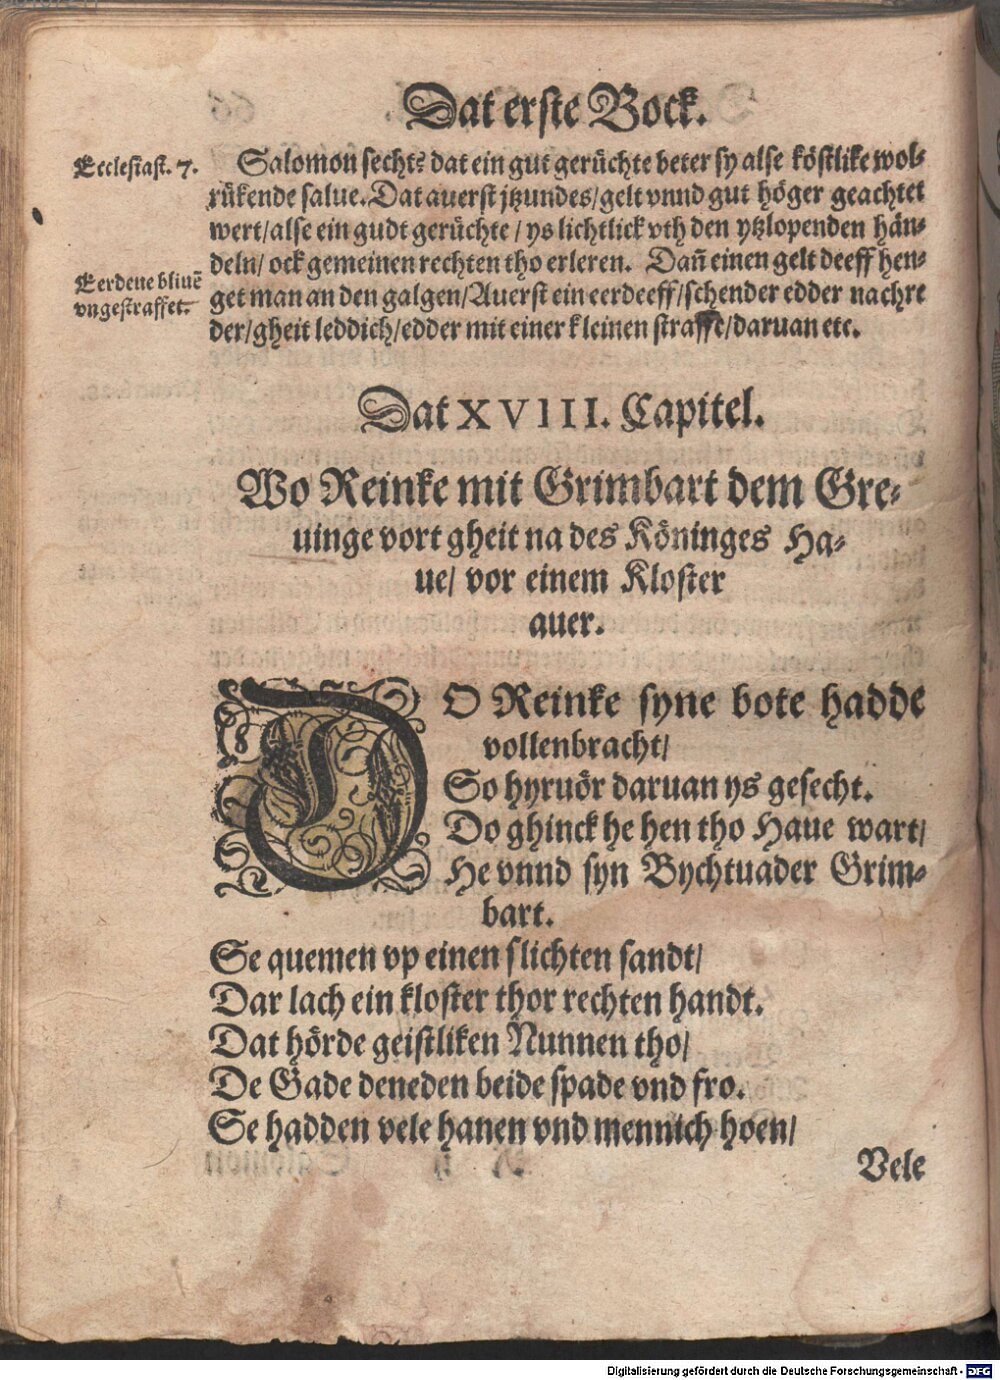 Dat erste Bock.
Ecclesiast. 7.
Salomon secht: dat ein gut gerüchte beter sy alse köstlike wol-
rükende salue. Dat auerst jtzundes/ gelt vnnd gut höger geachtet
wert/ alse ein gudt gerüchte/ ys lichtlick vth den ytzlopenden hän-
deln/ ock gemeinen rechten tho erleren. Dañ einen gelt deeff hen-
Eerdeue bliuẽ
vngestraffet.
get man an den galgen/ Auerst ein eerdeeff/ schender edder nachre
der/ gheit leddich/ edder mit einer kleinen straffe/ daruan etc.
Dat XVIII. Capitel.
Wo Reinke mit Grimbart dem Gre-
uinge vort gheit na des Köninges Ha-
ue/ vor einem Kloster
auer.
DO Reinke syne bote hadde
vollenbracht/
So hyruör daruan ys gesecht.
Do ghinck he hen tho Haue wart/
He vnnd syn Bychtuader Grim-
bart.
Se quemen vp einen slichten sandt/
Dar lach ein kloster thor rechten handt.
Dat hörde geistliken Nunnen tho/
De Gade deneden beide spade vnd fro.
Se hadden vele hanen vnd mennich hoen/
Vele
Digitalisierung gefördert durch die Deutsche Forschungsgemeinschaft - DFG